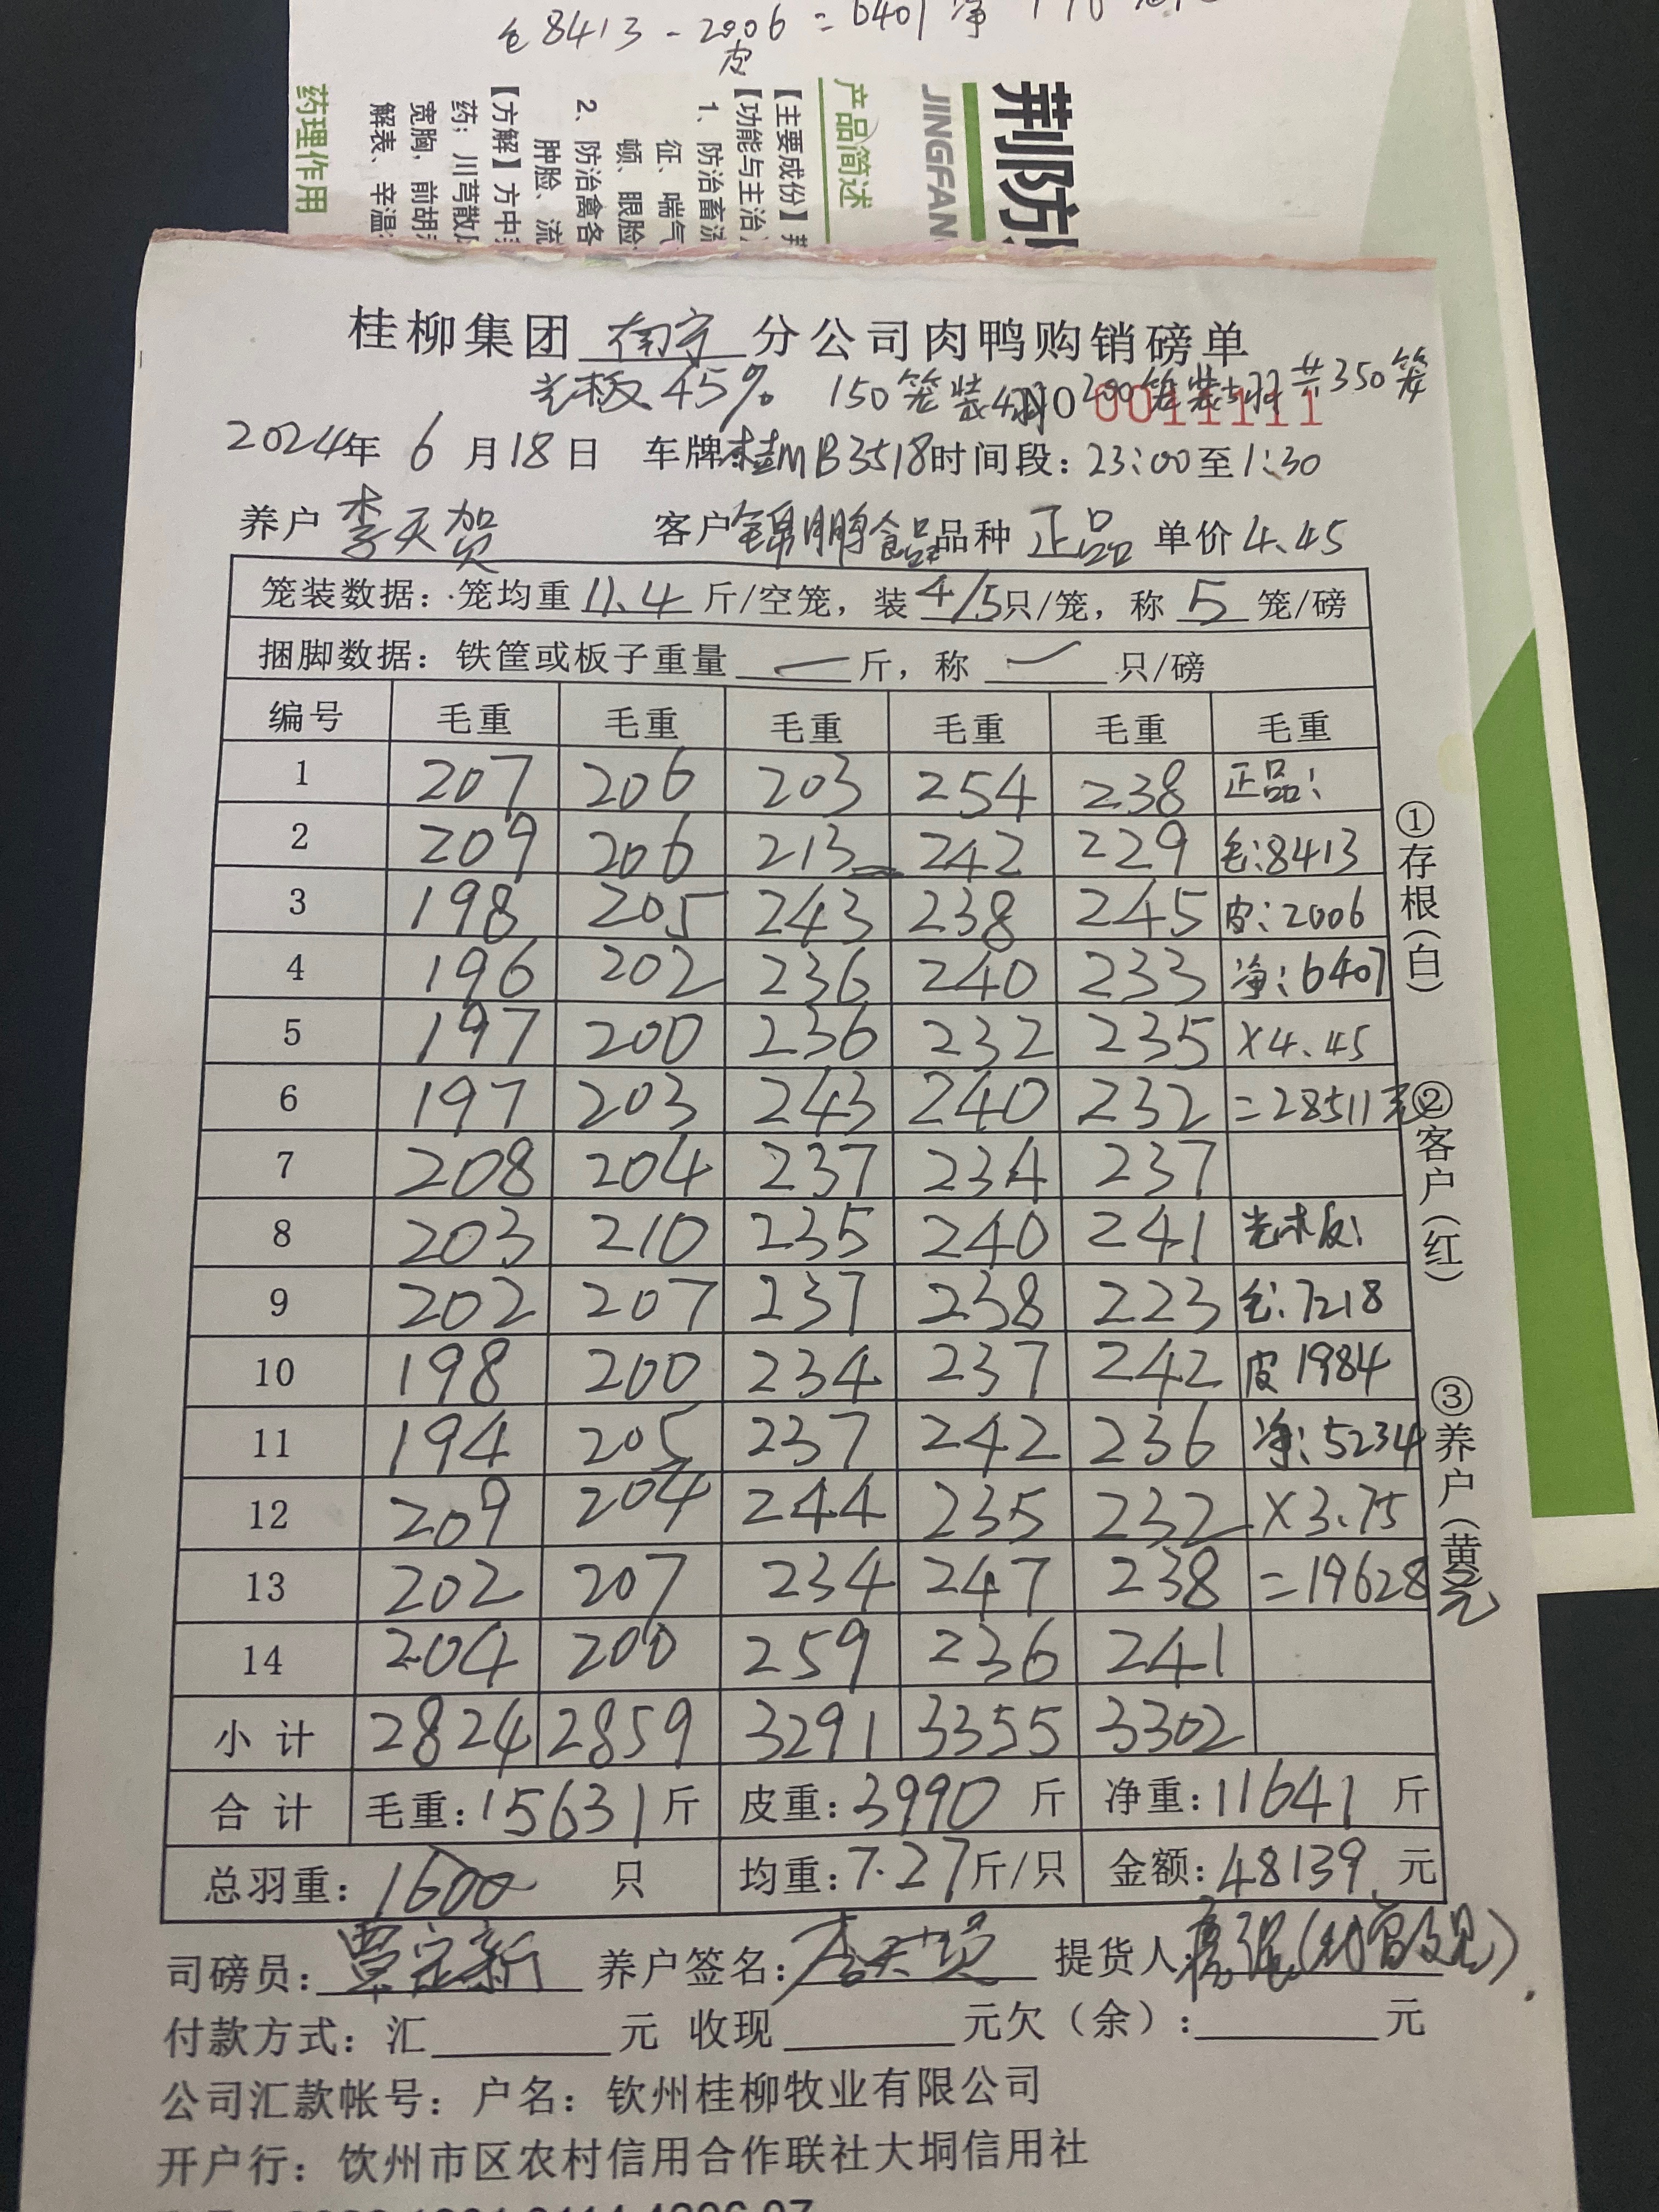 毛8413-2006=6407净
皮
荆防
JINGFAN
产品简述
【主要成份】荆
【功能与主治】
1、防治畜流
征、喘气
顿、眼脸
2、防治禽各
肿脸、流
【方解】方中
药；川芎散
宽胸，前胡
解表、辛温
药理作用
桂柳集团 南宁 分公司肉鸭购销磅单
光板45% 150笼装4羽 200笼装5羽 共350笼
NO 0011111
2024年 6月18日 车牌桂MB3518时间段：23:00至1:30
养户 李天贺 客户 锦鹏食品 品种 正品 单价4.45
笼装数据：笼均重 11.4 斤/空笼，装 4/5只/笼，称 5 笼/磅
捆脚数据：铁筐或板子重量 — 斤，称 — 只/磅
编号 毛重 毛重 毛重 毛重 毛重 毛重
1 207 206 203 254 238 正品：
2 209 206 213 242 229 毛：8413
3 198 205 243 238 245 皮：2006
4 196 202 236 240 233 净：6407
5 197 200 236 232 235 ×4.45
6 197 203 243 240 232 =28511元
7 208 204 237 234 237
8 203 210 235 240 241 光木板：
9 202 207 237 238 223 毛：7218
10 198 200 234 237 242 皮1984
11 194 205 237 242 236 净：5234
12 209 204 244 235 232 ×3.75
13 202 207 234 247 238 =19628元
14 204 200 259 236 241
小计 2824 2859 3291 3355 3302
合计 毛重：15631斤 皮重：3990 斤 净重：11641 斤
总羽重：1600 只 均重：7.27斤/只 金额：48139 元
司磅员：覃定新 养户签名：李天贺 提货人：
付款方式：汇 元 收现 元欠（余）： 元
公司汇款帐号：户名：钦州桂柳牧业有限公司
开户行：钦州市区农村信用合作联社大垌信用社
①存根（白）
②客户（红）
③养户（黄）